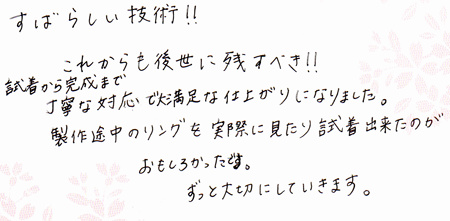 すばらしい技術!!
これからも後世に残すべき!!
試着から完成まで
丁寧な対応で大満足な仕上がりになりました。
製作途中のリングを実際に見たり試着出来たのが
おもしろかったです。
ずっと大切にしていきます。